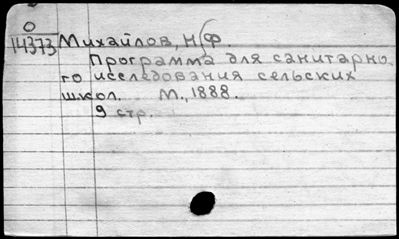 О
14373 Михайлов, Н Ф
Программа для санитарно
го исследования сельских
школ. М., 1888.
9 стр.